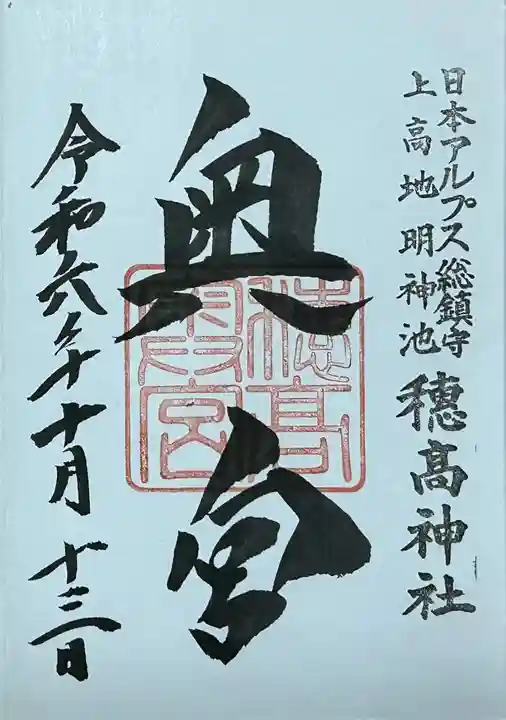 日本アルプス総鎮守
上高地明神池
穂髙神社
奥宮
穂髙奥宮
令和六年十月十三日